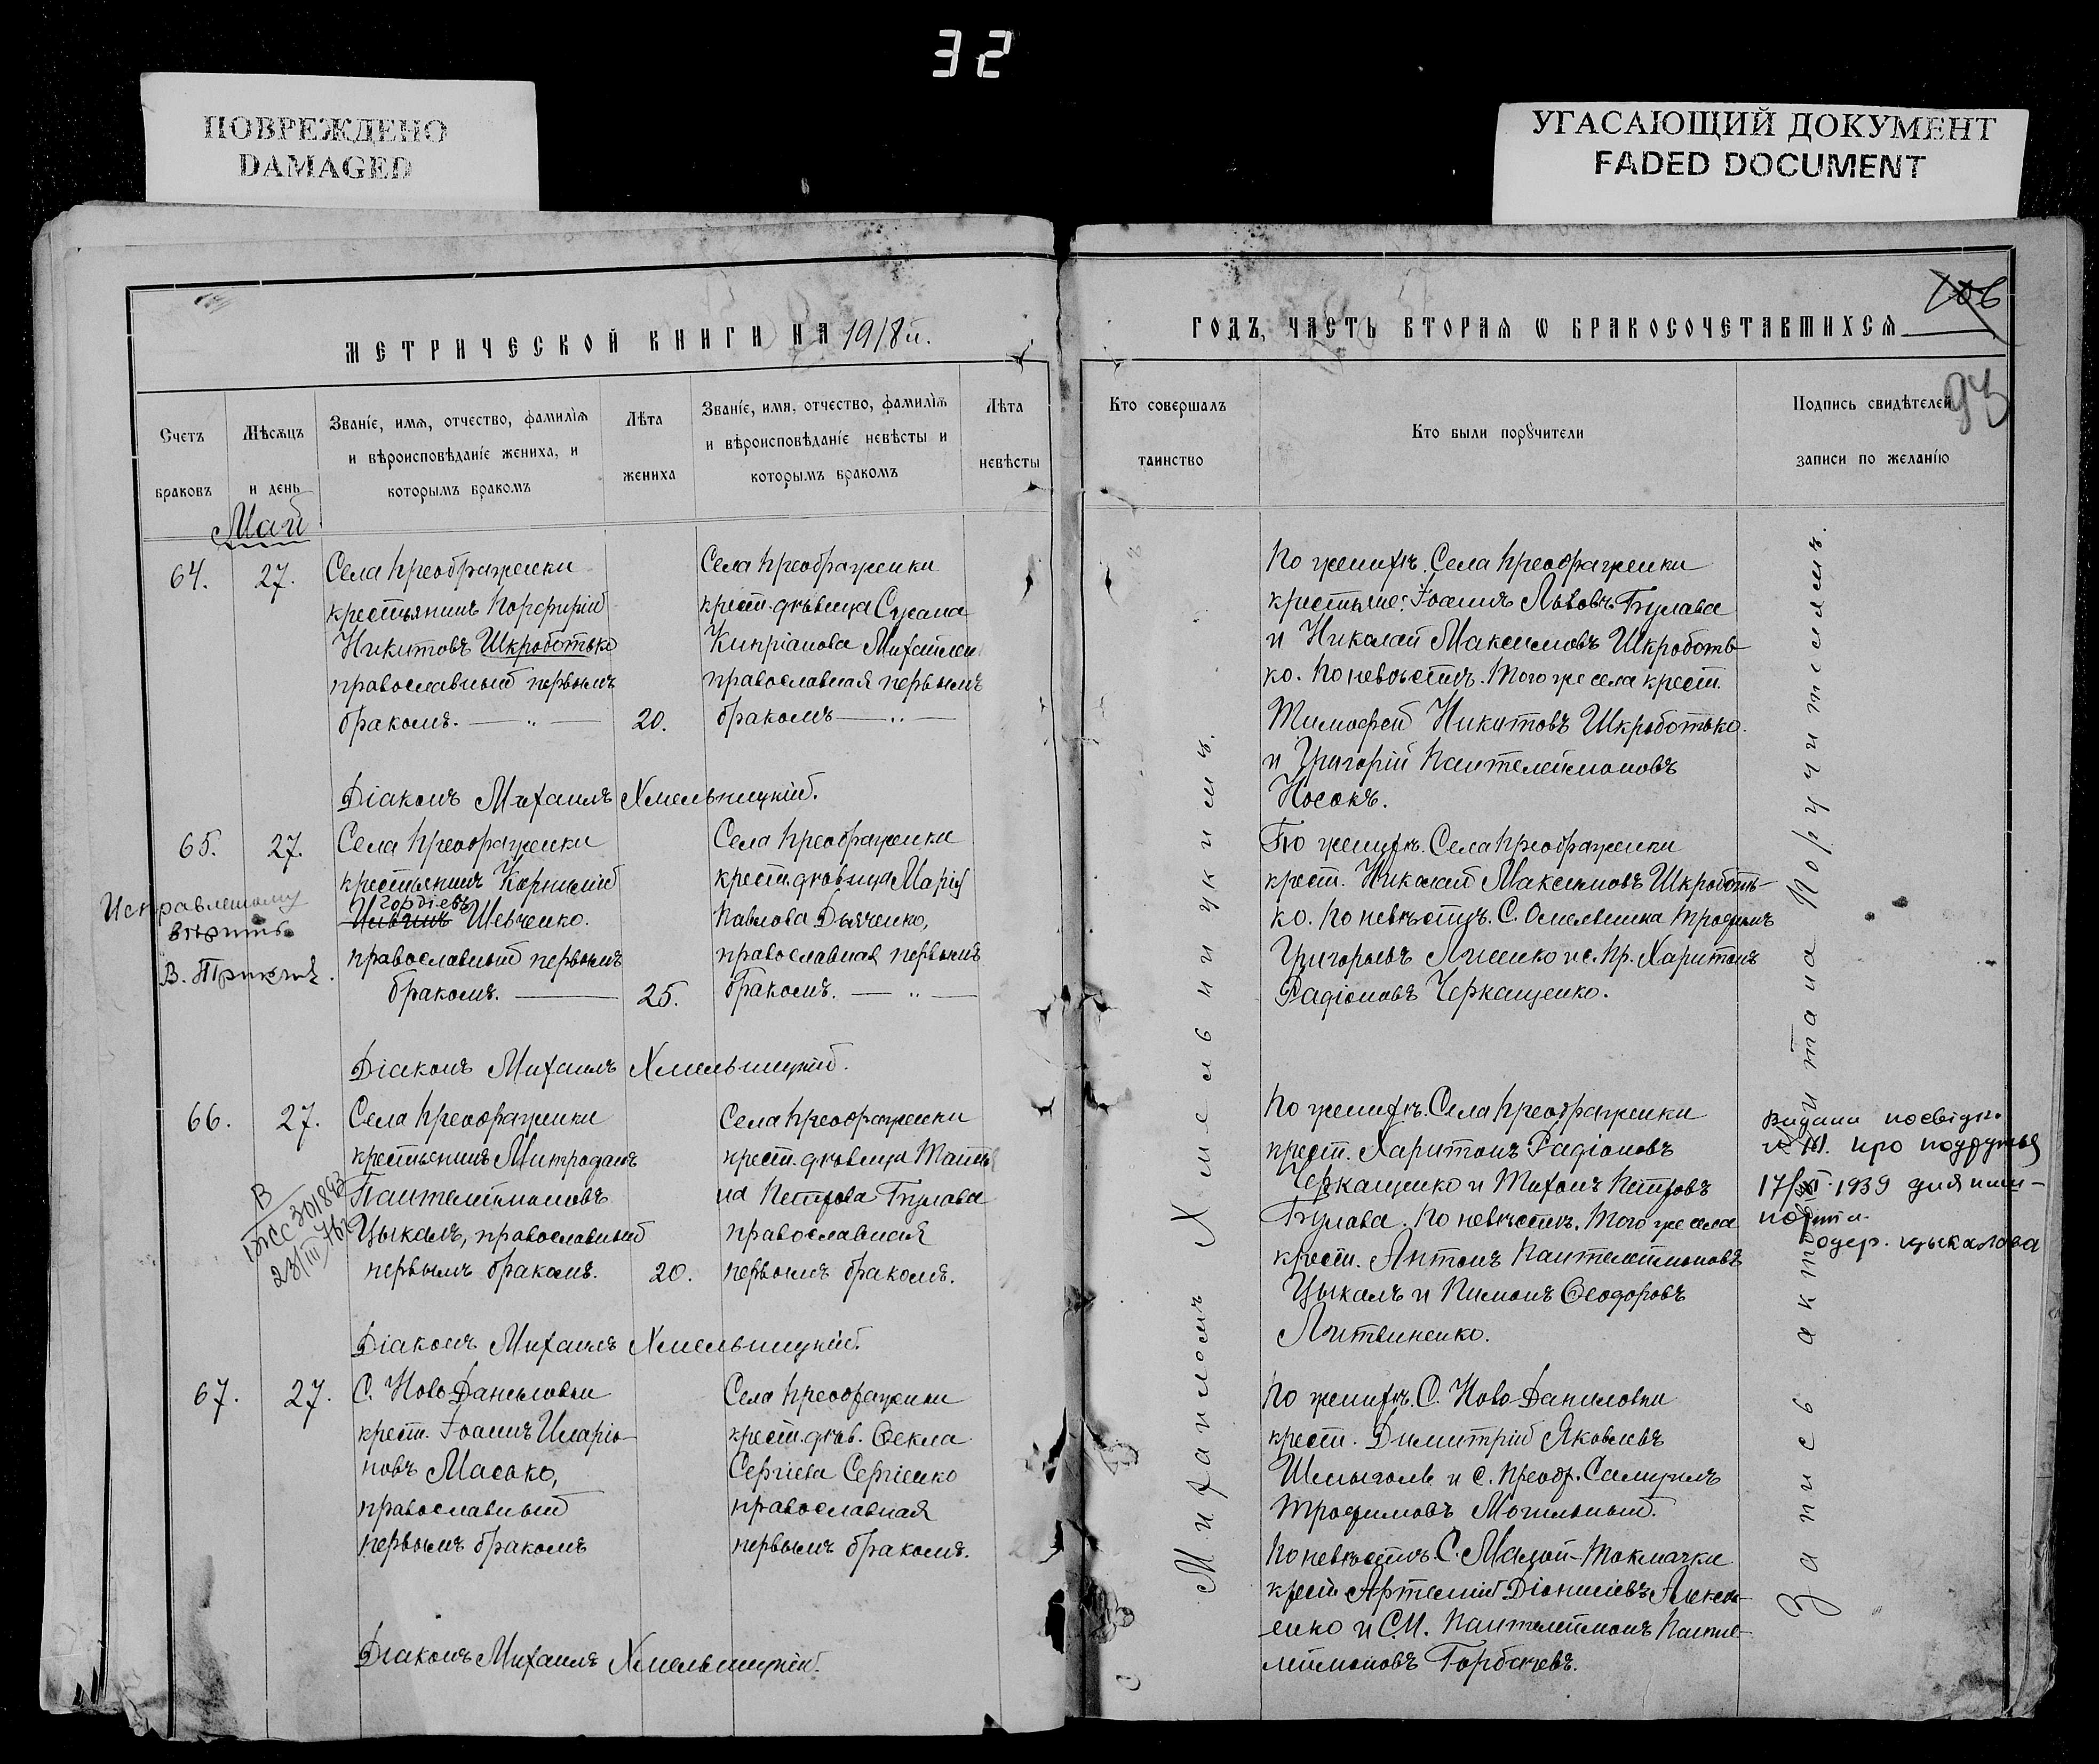 32
ПОВРЕЖДЕНО
DAMAGED
УГАСАЮЩИЙ ДОКУМЕНТ
FADED DOCUMENT
МЕТРИЧЕСКОЙ КНИГИ НА 1918й.
Счетъ
браковъ
Мѣсяцъ
и день
Званіе, имя, отчество, фамилія
и вѣроисповѣданіе жениха, и
которымъ бракомъ
Лѣта
жениха
Званіе, имя, отчество, фамилія
и вѣроисповѣданіе невѣсты и
которымъ бракомъ
Лѣта
невѣсты
Май
64.
27.
Села Преображенки
крестьянинъ Порфирій
Никитовъ Шкроботько
православный первымъ
бракомъ.
20.
Села Преображенки
крест. дѣвица Сусана
Кипріанова Михайлен
православная первымъ
бракомъ
Діаконъ Михаилъ Хмельницкій.
65.
27.
Исправленному
вѣрить
Села Преображенки
крестьянинъ Корнилій
Гордіевъ
Шевченко.
православный первымъ
бракомъ.
25.
Села Преображенки
крест. дѣвица Марія
Павлова Дьяченко,
православная первымъ
бракомъ.
Діаконъ Михаилъ Хмельницкій.
66.
27.
Села Преображенки
крестьянинъ Митрофанъ
Пантелеймоновъ
Цыкалъ, православный
первымъ бракомъ.
20.
Села Преображенки
крест. дѣвица Татья
на Петрова Булава
православная
первымъ бракомъ.
Діаконъ Михаилъ Хмельницкій.
67.
27.
С. Ново-Даниловки
крест. Іоаннъ Иларіо-
новъ Масько,
православный
первымъ бракомъ
Села Преображенки
крест. дѣв. Ѳекла
Сергіева Сергіенко
православная
первымъ бракомъ.
Діаконъ Михаилъ Хмельницкій.
106
93
ГОДЪ, ЧАСТЬ ВТОРАЯ Ѡ БРАКОСОЧЕТАВШИХСЯ
Кто совершалъ
таинство
Кто были порꙋчители
Подпись свидѣтелей
записи по желанію
Михаиломъ Хмельницкимъ.
По женихѣ. Села Преображенки
крестьяне: Іоаннъ Львовъ Булава
и Николай Максимовъ Шкроботь-
ко. По невѣстѣ. Того же села крест.
Тимофей Никитовъ Шкроботько.
и Григорій Пантелеймоновъ
Носокъ.
По женихѣ. Села Преображенки
крест. Николай Максимовъ Шкроботь-
ко. По невѣстѣ. С. Омельника Трофимъ
Григорьевъ Лисенко и с. Пр. Харитонъ
Радіоновъ Черкащенко.
По женихѣ. Села Преображенки
крест. Харитонъ Радіоновъ
Черкащенко и Тихонъ Петровъ
Булава. По невѣстѣ. Того же села
крест. Антонъ Пантелеймоновъ
Цыкалъ и Пимонъ Ѳеодоровъ
Литвиненко.
По женихѣ. С. Ново-Даниловки
крест. Димитрій Яковлевъ
Шмыголь и с. Преобр. Самуилъ
Трофимовъ Могильный.
По невѣстѣ. С. Малой-Токмачки
крест. Артемій Діонисіевъ Алексѣ-
енко и С.М. Пантелеймонъ Панте-
леймоновъ Горбачевъ.
Запись акто читана Поручителямъ.
Видани посвідч.
про подружья
1939 для
одер. Цыкалова